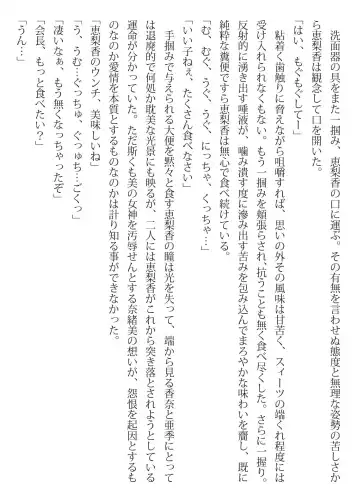 洗面器の具をまた一掴み、恵梨香の口に運ぶ。その有無を言わせぬ態度と無理な姿勢の苦しさか
ら恵梨香は観念して口を開いた。
「はい、もぐもぐしてー」
　粘着く歯触りに脅えながら咀嚼すれば、思いの外その風味は甘苦く、スィーツの端くれ程度には
受け入れられなくもない。もう一掴みを頬張らされ、抗うことも無く食べ尽くした。さらに一握り。
反射的に湧き出す唾液が、噛み潰す度に滲み出す苦みを包み込んでまろやかな味わいを齎し、既に
純粋な糞便ですら恵梨香は無心で食べ続けている。
「む、むぐ、うぐ、うぐ、にっちゃ、くっちゃ…」
「いい子ねぇ、たくさん食べなさい」
　手掴みで与えられる大便を黙々と食す恵梨香の瞳は光を失って、端から見る香奈と亜季にとって
は退廃的で何処か耽美な光景にも映るが、二人には恵梨香がこれから突き落とされようとしている
運命が分かっていた。ただ斯くも美の女神を汚辱せんとする奈緒美の想いが、怨恨を起因とするも
のなのか愛情を本質とするものなのかは計り知る事ができなかった。
「恵梨香のウンチ、美味しいね」
「う、うむ…ぐっちゅ、ぐっゅち…ごくっ」
「凄いなぁ、もう無くなっちゃったぞ」
「会長、もっと食べたい？」
「うん…」